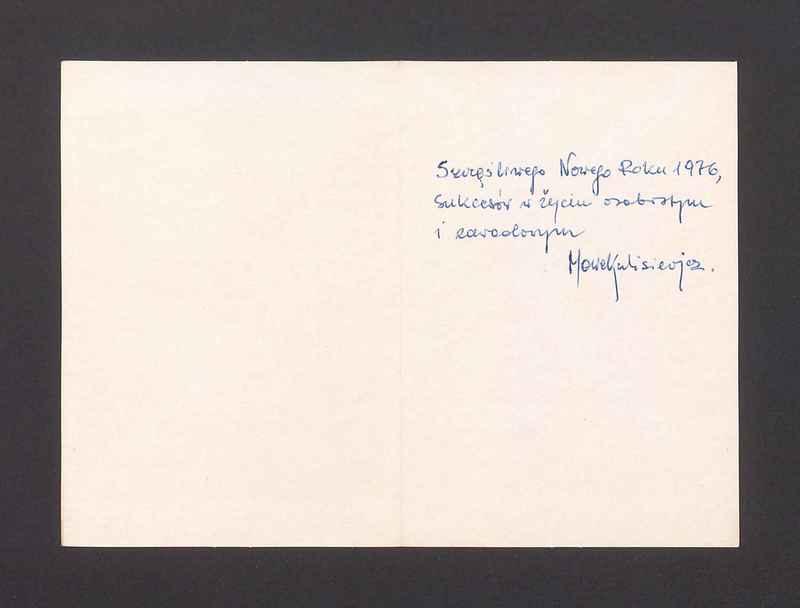 Szczęśliwego Nowego Roku 1976,
Sukcesów w życiu osobistym
i zawodowym
Marek Kulisiewicz.